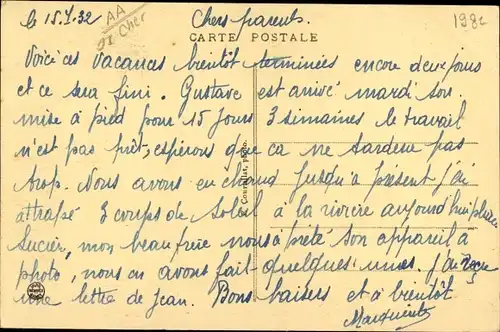 le 15.7.32 AA Chers parents. 198c
01 Cher CARTE POSTALE
Voici ces vacances bientôt terminées encore deux jours
et ce sera fini. Gustave est arrivé mardi son
mise à pied pour 15 jours 3 semaines le travail
n'est pas prêt, espérons que ca ne tardera pas
trop. Nous avons eu chaud jusqu'à présent j'ai
attrapé 3 coups de soleil à la rivière aujourd'hui
Lucien, mon beau frère nous a prêté son appareil à
photo, nous en avons fait quelques unes. j'ai reçu
une lettre de Jean. Bons baisers et à bientôt
Marguerite
photo.